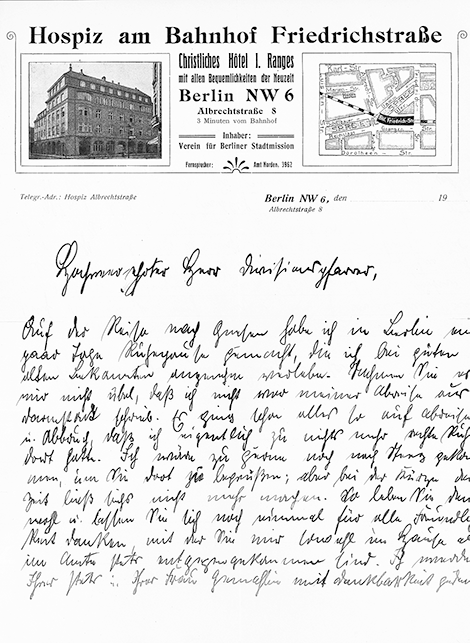 Hospiz am Bahnhof Friedrichstraße
Christliches Hôtel I. Ranges
mit allen Bequemlichkeiten der Neuzeit
Berlin NW 6
Albrechtstraße 8
3 Minuten vom Bahnhof
Inhaber:
Verein für Berliner Stadtmission
Fernsprecher: Amt Norden. 1962
Karl - Str.
Bhf. Friedrich-Str.
Georgen Str.
Dorotheen - Str.
Telegr.-Adr.: Hospiz Albrechtstraße
Berlin NW 6, den 19
Albrechtstraße 8
Hochverehrter Herr Divisionspfarrer,
Auf der Reise nach habe ich in Berlin ein
paar Tage Ruhepause gemacht, die ich bei guten
alten Bekannten angenehm verlebe. Nehmen Sie es
mir nicht übel, daß ich nicht vor meiner Abreise aus
Darmstadt schrieb. Es ging schon alles so auf Abreise
u. Abbruch, daß ich eigentlich zu nichts mehr rechte Ruhe
dort hatte. Ich wäre zu gerne noch nach
men, um Sie dort zu begrüßen; aber bei der Kürze der
Zeit ließ sichs nicht mehr machen. So leben Sie denn
wohl u. lassen Sie sich noch einmal für alle Freundlich
keit danken, mit der Sie mir sowohl im Hause als
im Amte stets entgegengekommen sind. Ich werde
Ihrer stets u. Ihrer Frau Gemahlin mit Dankbarkeit